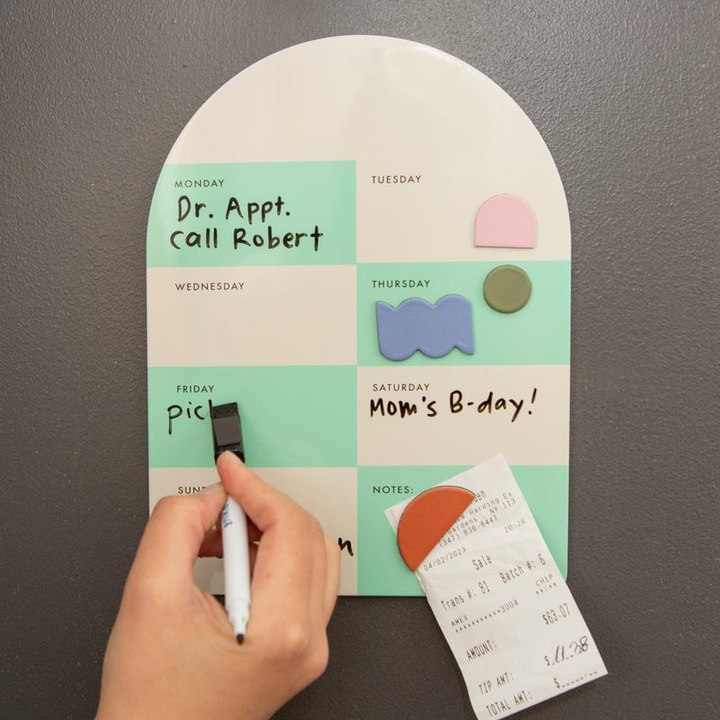 MONDAY
Dr. Appt.
Call Robert
TUESDAY
WEDNESDAY
THURSDAY
FRIDAY
pic
SATURDAY
Mom's B-day!
SUN
n
NOTES:
Harding Ex
NY 113
(347) 836-8447
20:28
04/02/2023
Sale
Trans #: 81 Batch #: 6
CHIP
AMEX ***********3004 **/**
AMOUNT: $63.07
TIP AMT: $11.38
TOTAL AMT: $